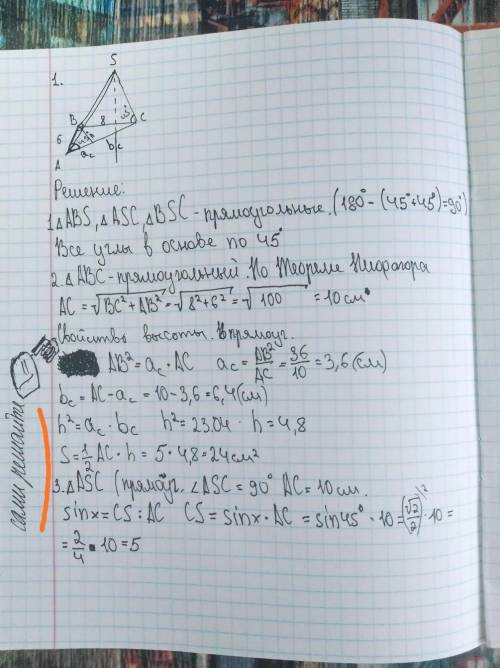 1.
S
B 8 45° C
6 45°
a_c b_c
A
Решение:
1. △ABS, △ASC, △BSC - прямоугольные. (180° - (45°+45°)=90°)
Все углы в основе по 45°
2. △ABC - прямоугольный. По Теореме Пифагора
AC = √BC²+AB² = √8²+6² = √100 = 10 см
Свойства высоты. В прямоуг.
AB² = a_c · AC a_c = AB²/AC = 36/10 = 3,6 (см)
b_c = AC - a_c = 10 - 3,6 = 6,4 (см)
h² = a_c · b_c h² = 23.04 · h = 4,8
S = 1/2 AC · h = 5 · 4,8 = 24 см²
3. △ASC (прямоуг. ∠ASC = 90° AC = 10 см.
sinx = CS : AC CS = sinx · AC = sin45° · 10 = (√2/2)² · 10 =
= 2/4 · 10 = 5
сами решайте